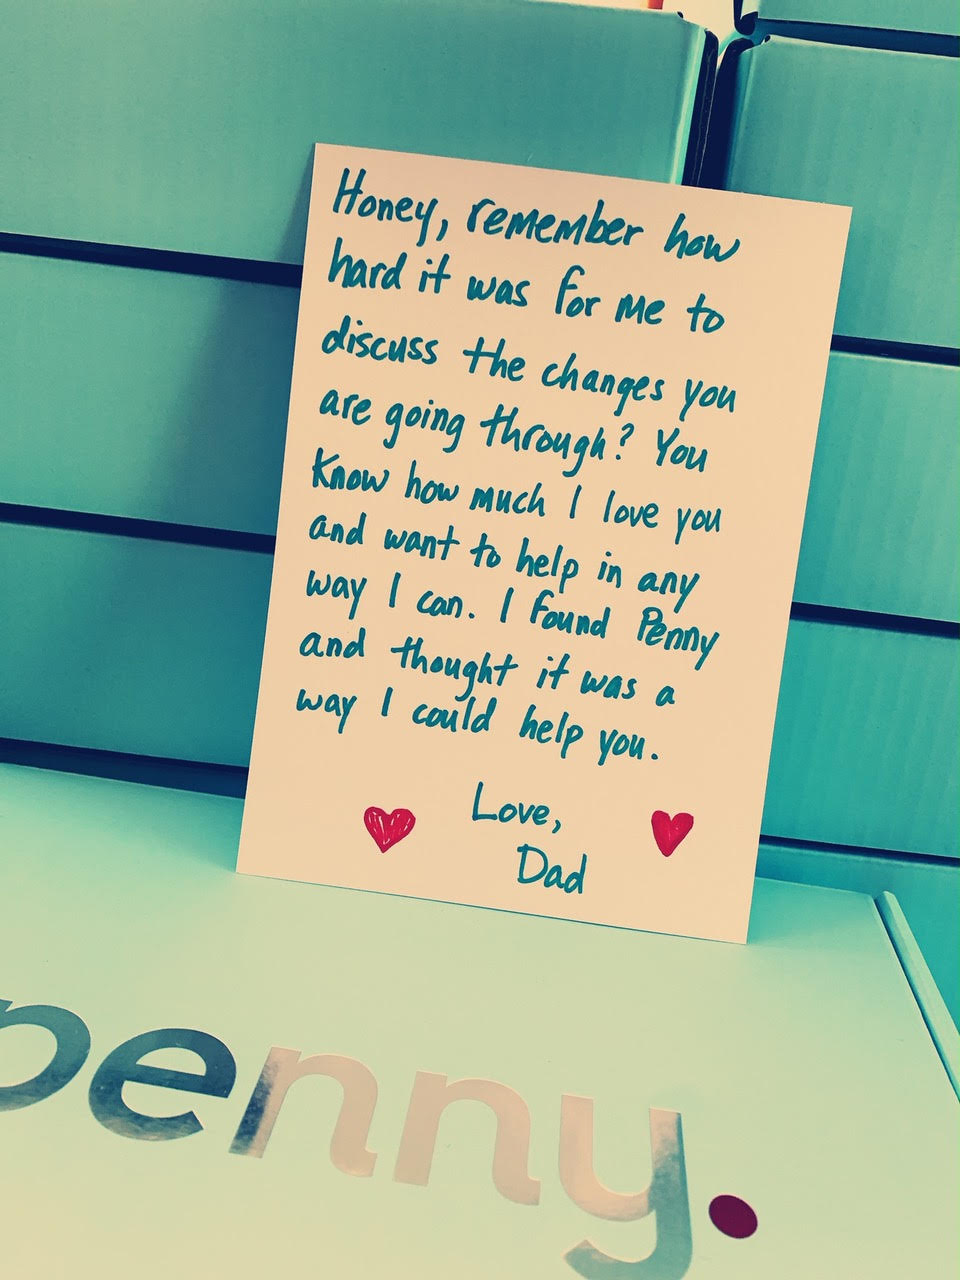 Honey, remember how
hard it was for me to
discuss the changes you
are going through? You
know how much I love you
and want to help in any
way I can. I found Penny
and thought it was a
way I could help you.
Love,
Dad
penny.